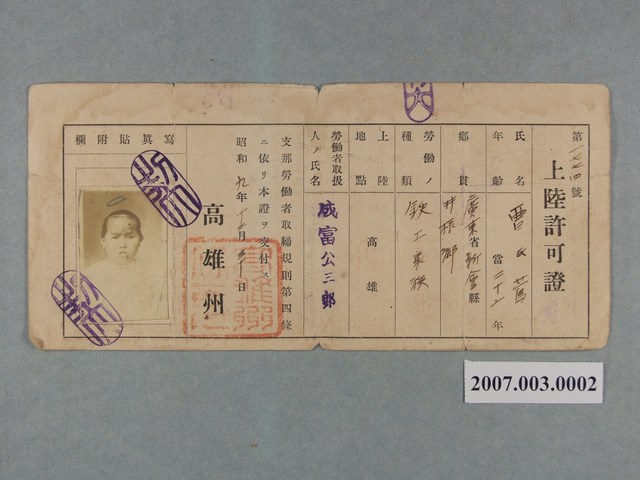 上陸許可證
氏名 曹氏
年齡 當二十 年
鄉貫 廣東省新會縣
井根鄉
勞働ノ種類 鉄工家族
上陸地點 高雄
勞働者取扱人ノ氏名 成富公三郎
支那勞働者取締規則第四條
ニ依リ本證ヲ交付ス
昭和九年十 月 日
高雄州
寫眞貼附欄
2007.003.0002